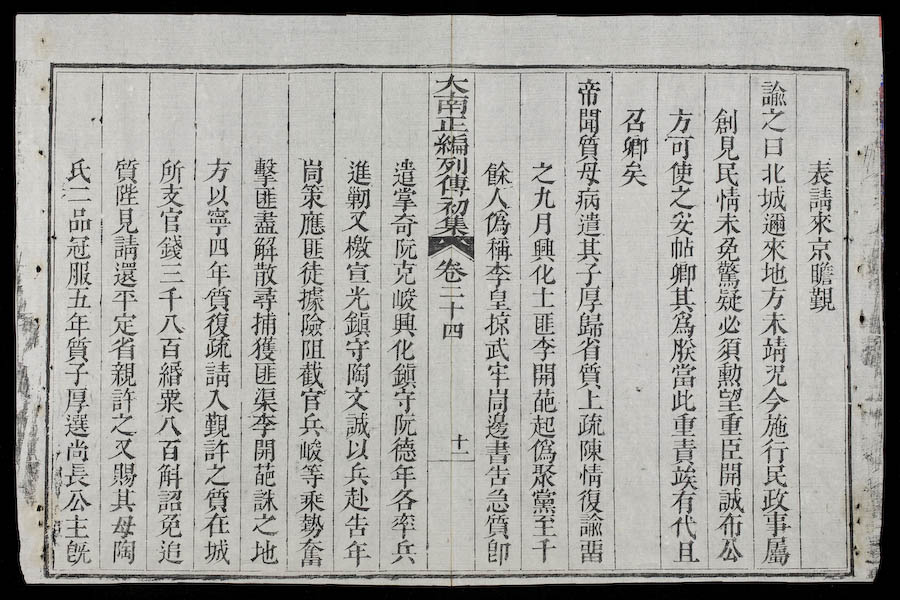 表請來京瞻覲
諭之曰北城邇來地方未靖况今施行民政事屬
創見民情未免驚疑必須勳望重臣開誠布公
方可使之安帖卿其爲朕當此重責竢有代且
召卿矣
帝聞質母病遣其子厚歸省質上疏陳情復諭畱
之九月興化土匪李開葩起僞聚黨至千
餘人僞稱李皇掠武牢峝邊書告急質卽
大南正編列傳初集 卷二十四 十一
遣掌奇阮克峻興化鎮守阮德年各率兵
進勦又檄宣光鎮守陶文誠以兵赴告年
峝策應匪徒據險阻截官兵峻等乘勢奮
擊匪盡解散尋捕獲匪渠李開葩誅之地
方以寧四年質復疏請入覲許之質在城
所支官錢三千八百緡粟八百斛詔免追
質陛見請還平定省親許之又賜其母陶
氏二品冠服五年質子厚選尚長公主旣